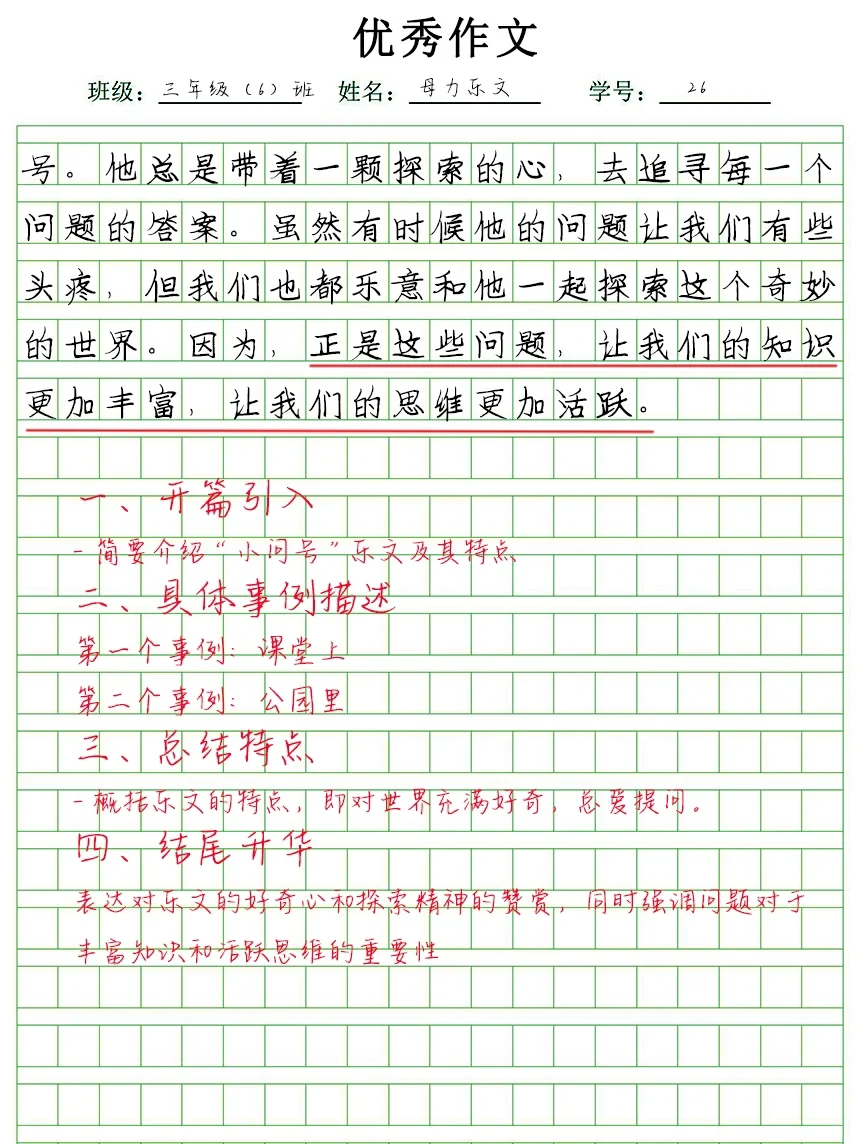 优秀作文
班级：三年级（6）班 姓名：母力乐文 学号：26
号。他总是带着一颗探索的心，去追寻每一个
问题的答案。虽然有时候他的问题让我们有些
头疼，但我们也都乐意和他一起探索这个奇妙
的世界。因为，正是这些问题，让我们的知识
更加丰富，让我们的思维更加活跃。
一、开篇引入
-简要介绍“小问号”乐文及其特点
二、具体事例描述
第一个事例：课堂上
第二个事例：公园里
三、总结特点
-概括乐文的特点，即对世界充满好奇，总爱提问。
四、结尾升华
表达对乐文的好奇心和探索精神的赞赏，同时强调问题对于
丰富知识和活跃思维的重要性